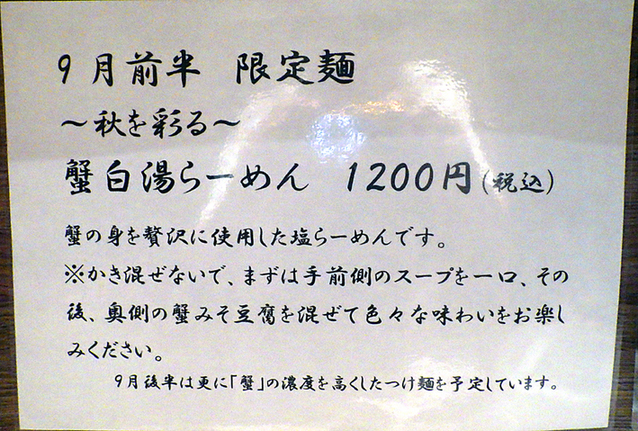 9月前半 限定麺
～秋を彩る～
蟹白湯らーめん 1200円(税込)
蟹の身を贅沢に使用した塩らーめんです。
※かき混ぜないで、まずは手前側のスープを一口、その
後、奥側の蟹みそ豆腐を混ぜて色々な味わいをお楽し
みください。
9月後半は更に「蟹」の濃度を高くしたつけ麺を予定しています。